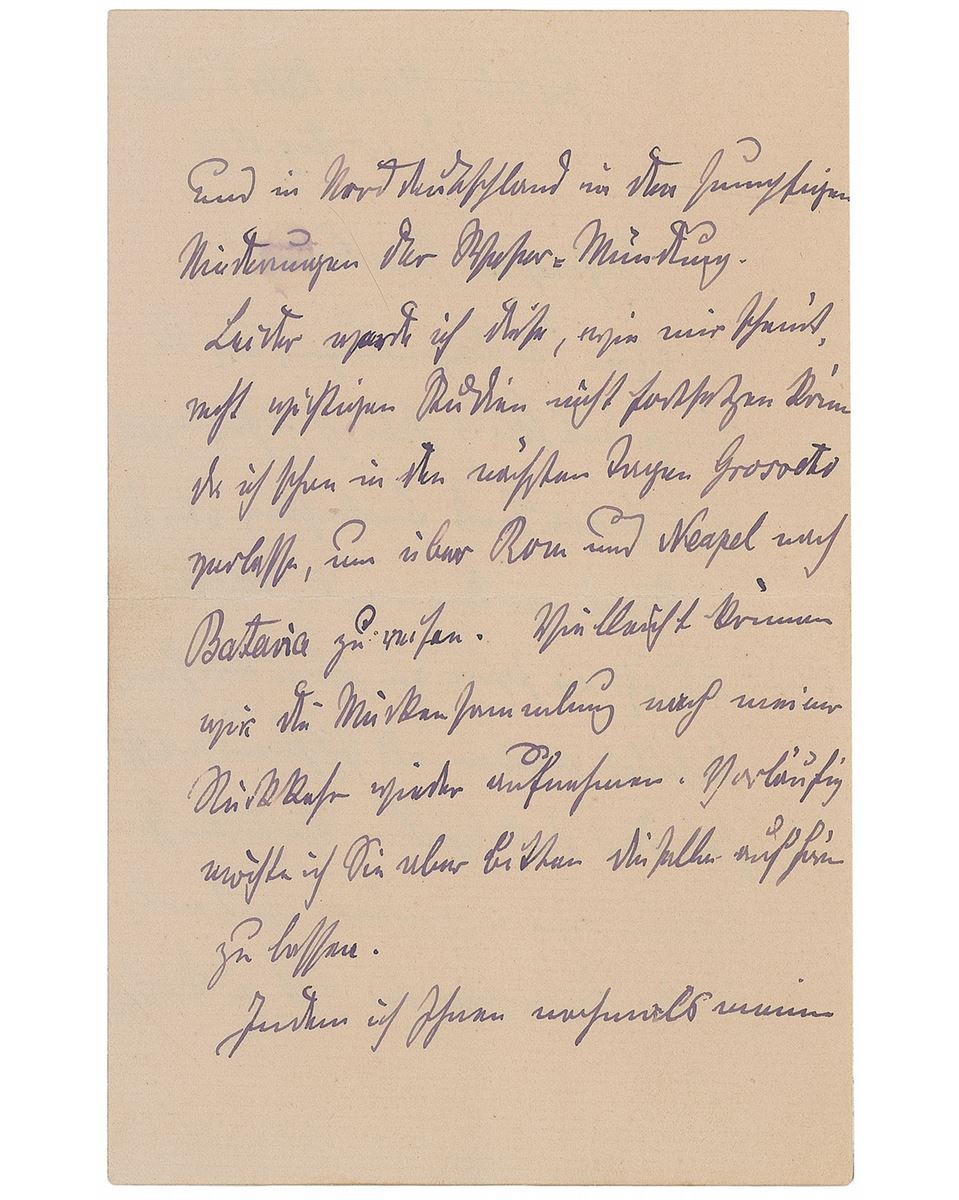 und in Norddeutschland in den sumpfigen
Niederungen der Weser-Mündung.
Leider werde ich diese, wie mir scheint,
recht wichtigen Studien nicht fortsetzen können
da ich schon in den nächsten Tagen Grosseto
verlasse, um über Rom und Neapel nach
Batavia zu reisen. Vielleicht können
wir die Mückensammlung nach meiner
Rückkehr wieder aufnehmen. Vorläufig
möchte ich Sie aber bitten dieselbe aufhören
zu lassen.
Indem ich Ihnen nochmals meinen